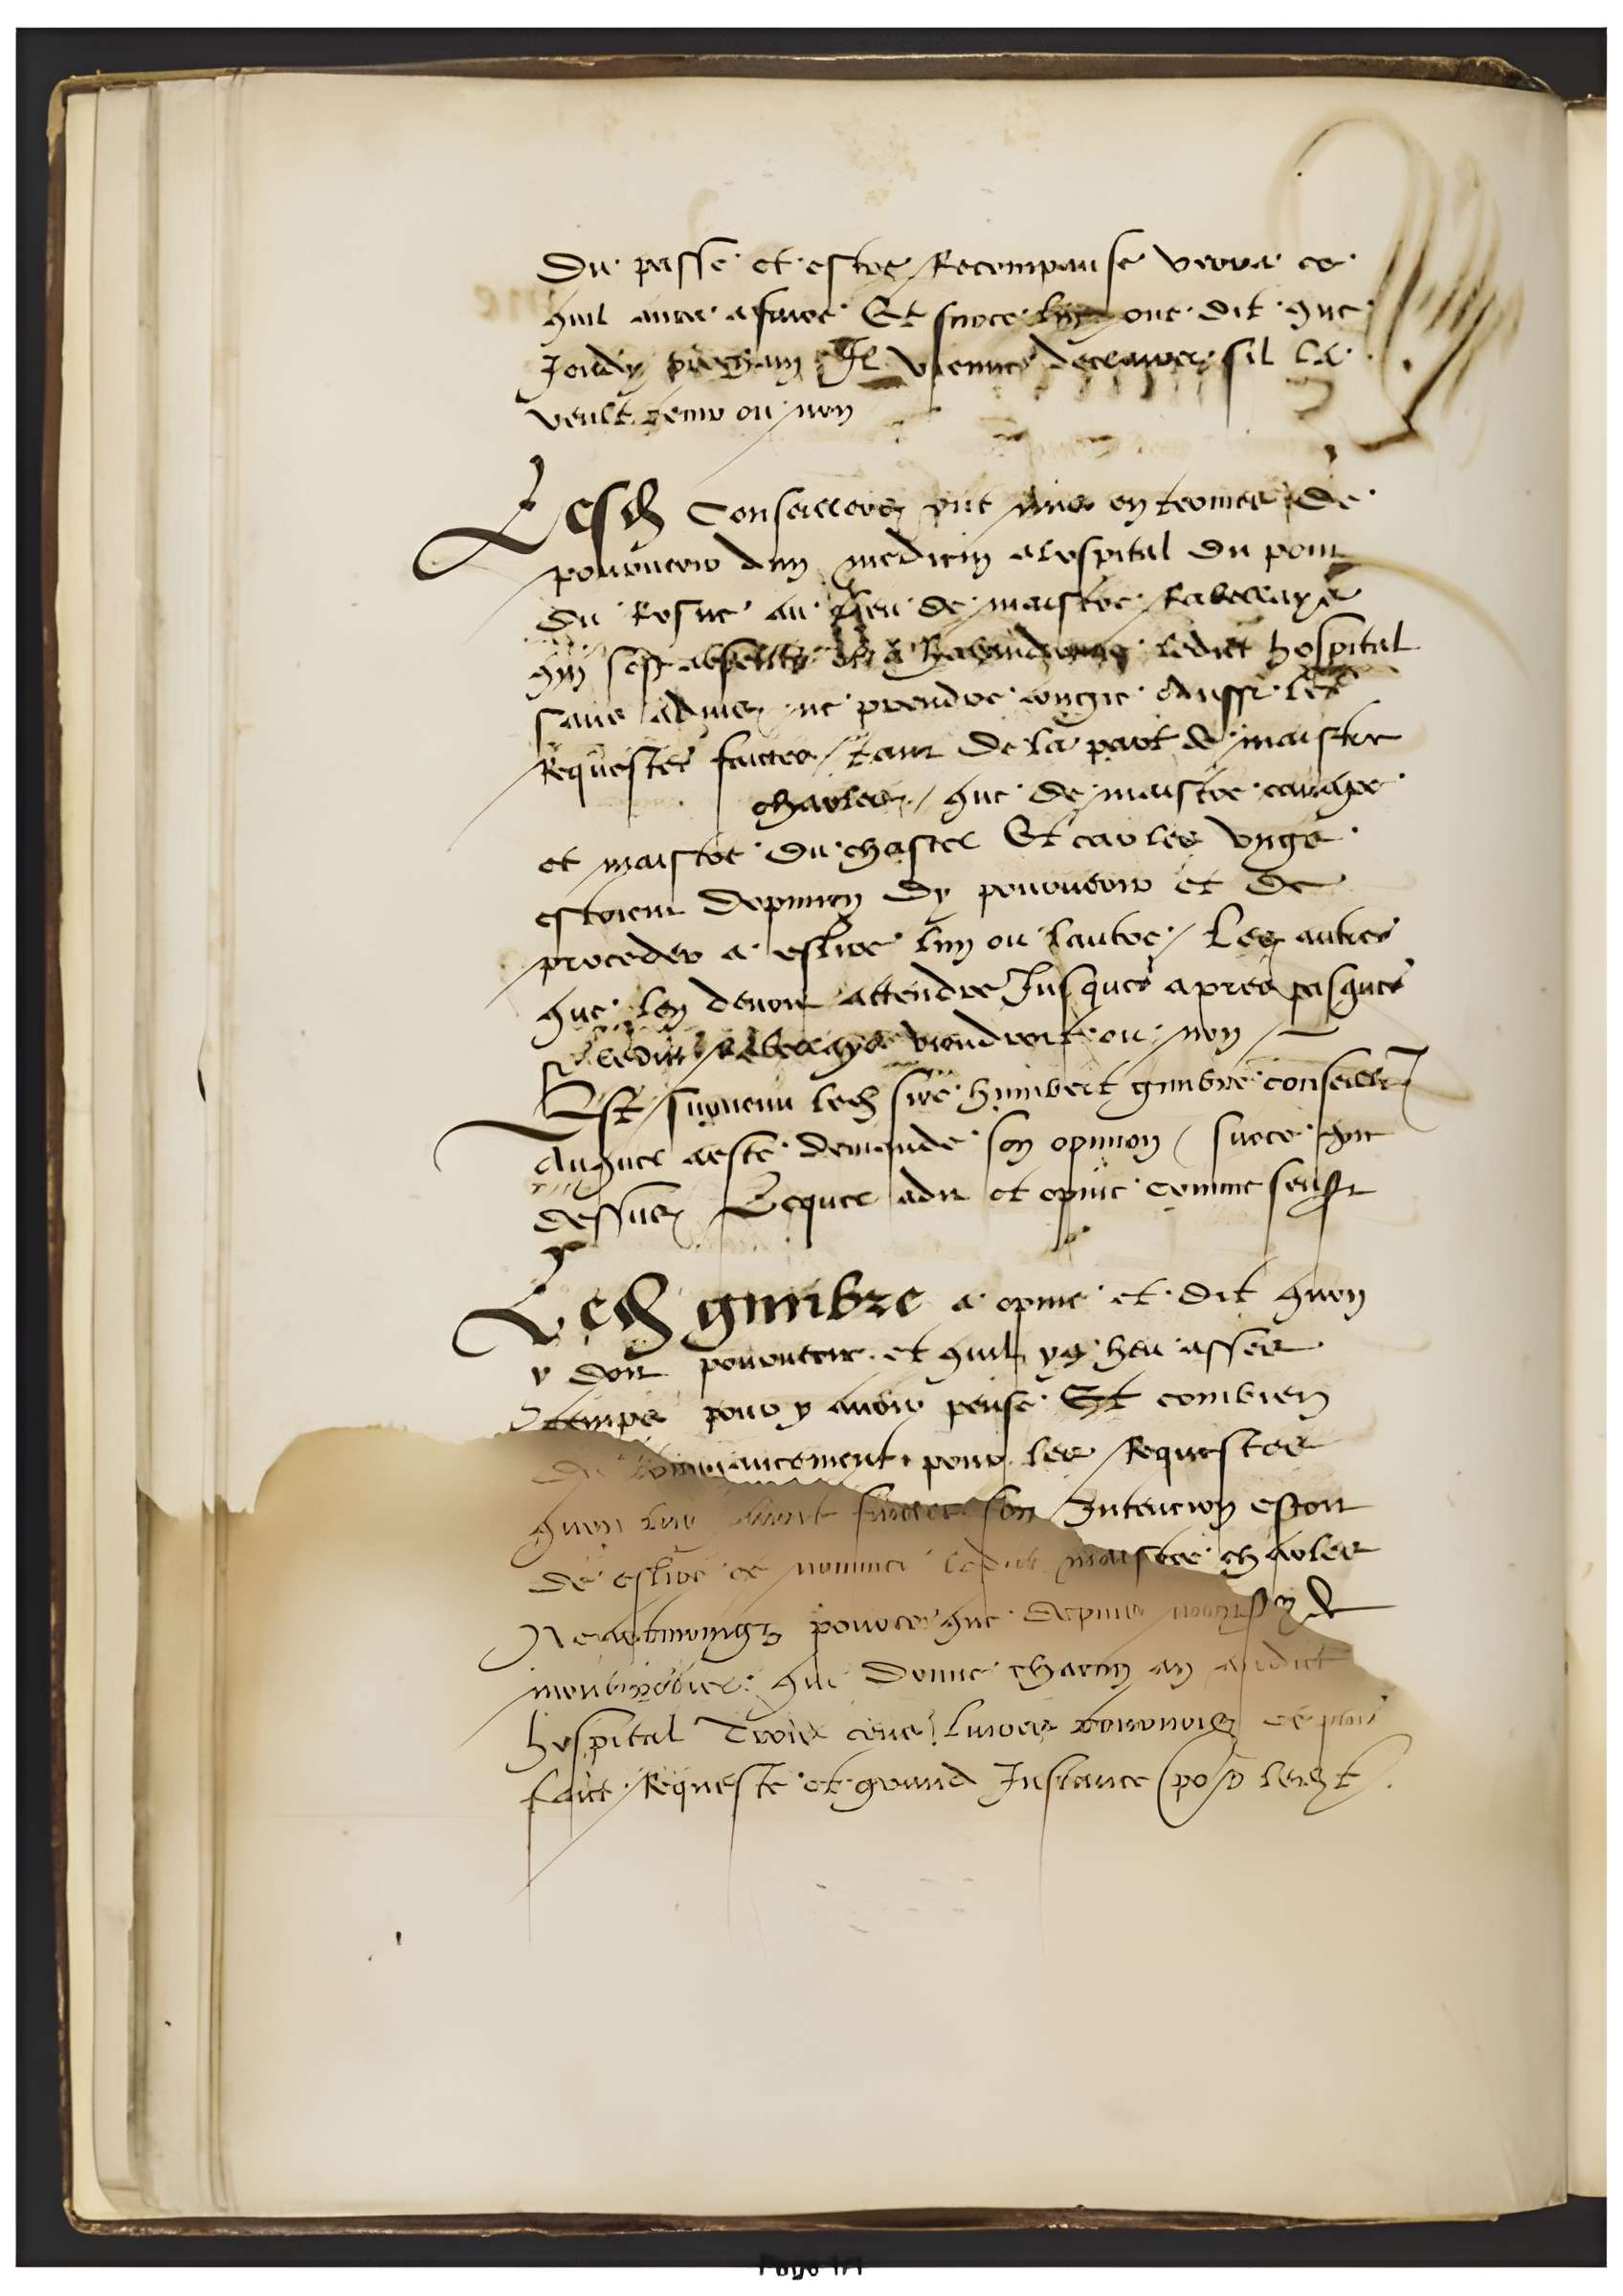 Du passe et estre Recompanse verra ce
quil aura afaire Et surce luy ont dit que
Jeudy prochain Il vienne declairer sil le
veult tenir ou non
Lesd Conseillers ont mis en termes de
pourveoir dun medicin alospital du pont
du Rosne au lieu de maistre Rabellayse
qui sest absente et a habandonne ledict hospital
sans adviz ne prendre congie Aussi les
Requestes faictes / tant de la part de maistre
charles / que de maistre canape
et maistre du chastel Et car les ungs
estoient doppinion dy pourveoir et de
proceder a eslire lun ou lautre / Les autres
que lon devoit attendre Jusques apres pasques
si ledict Rabellayse viendroit ou non
Est survenu led sire humbert gimbre conseiller
Auquel a este demande son opinion / surce que
dessus Lequel a dit et opine comme sensuit
Led gimbre a opine et dit quon
y doit pourveoir et quil y a heu assez
temps pour y avoir pense Et combien
Du commancement pour les Requestes
quon luy avoit faictes son Intencion estoit
de eslire et nommer ledict maistre charles
Neantmoings pource que depuis
que donne chacun an audict
hospital Trois cens livres tournois
faict Requeste et grand Instance
Page 1/1